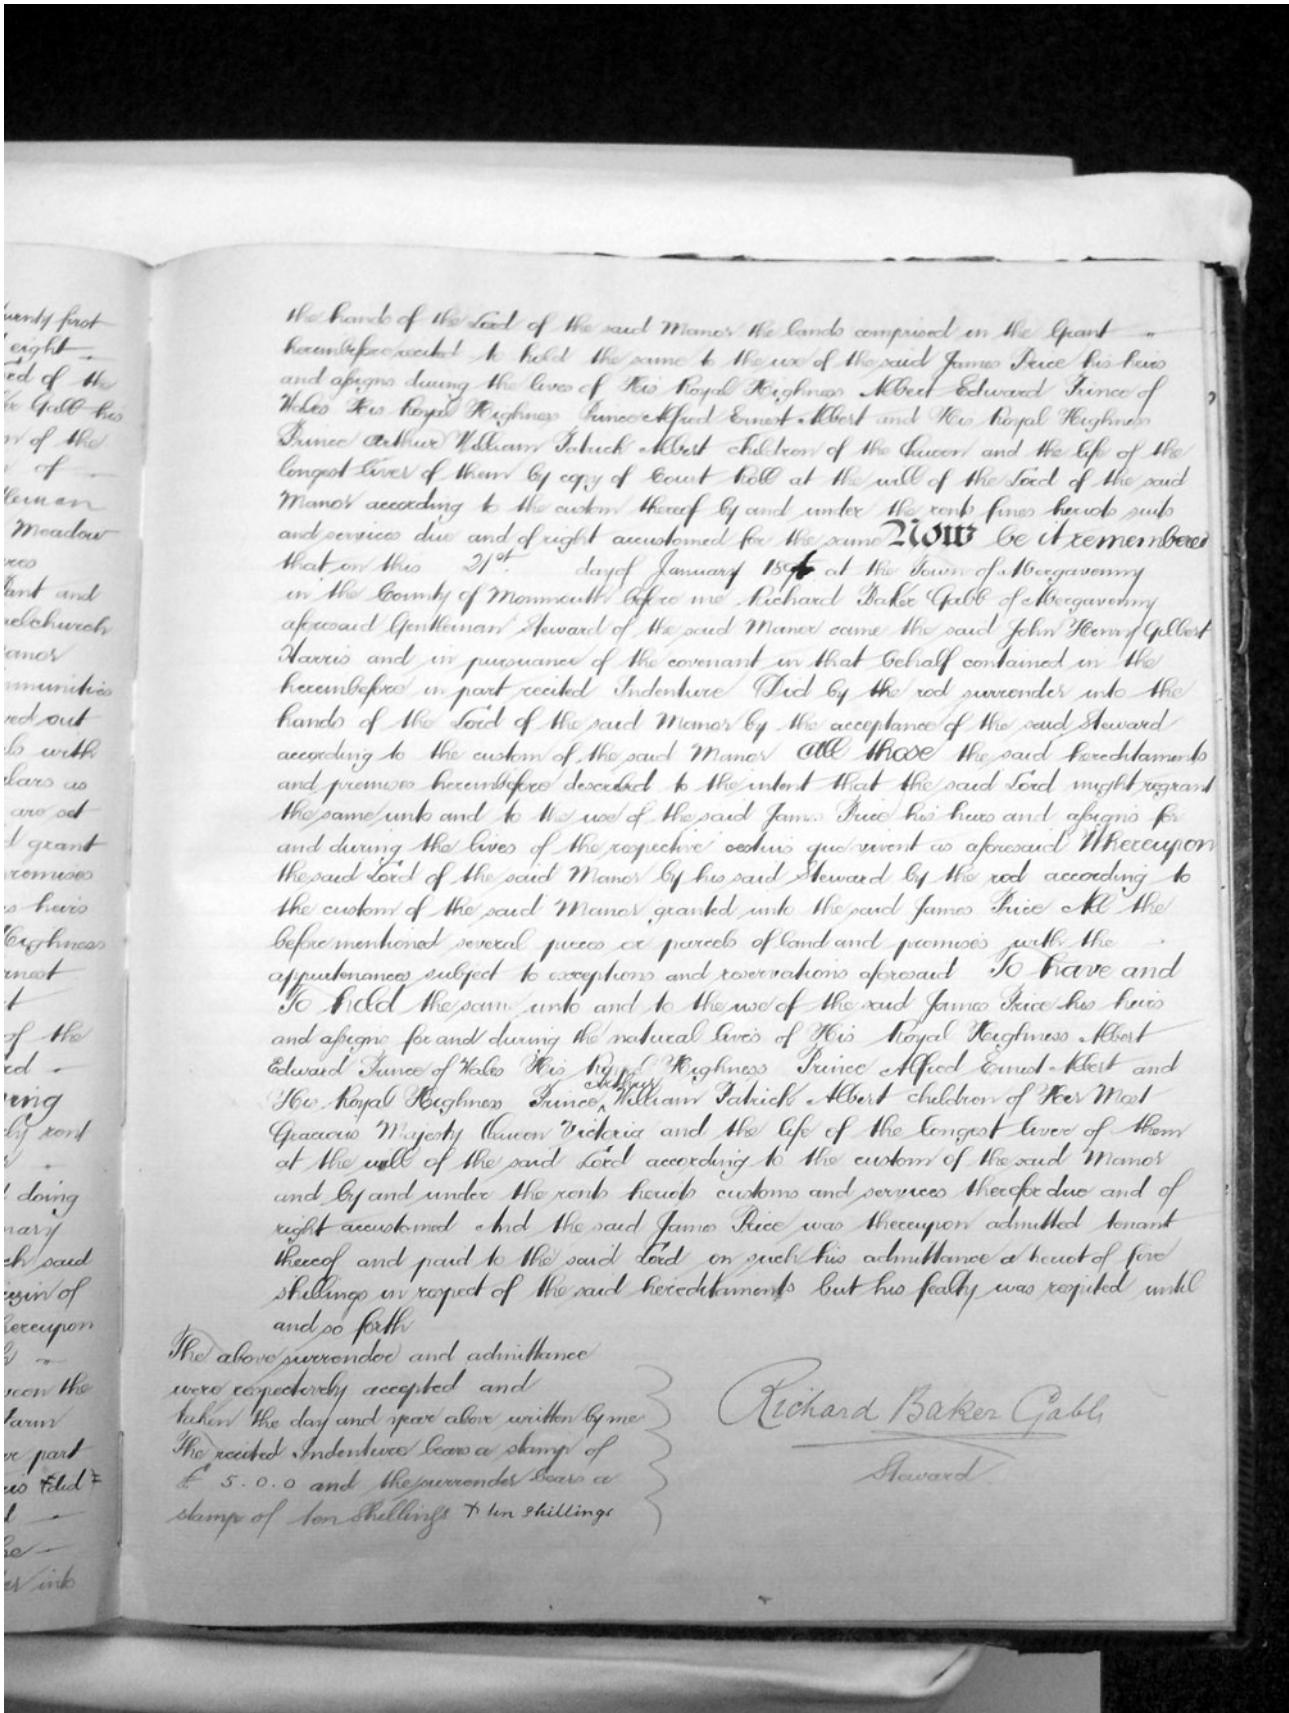 wenty first
eight
rd of the
Gabb his
n of the
of
tleman
Meadow
res
ant and
elchurch
anor
mmunities
ved out
ls with
lars as
are set
d grant
remises
s heirs
Highness
rnest
t
of the
rd
ring
ly rent
doing
nary
ch said
eizin of
hereupon
upon the
Farm
or part
did
he
into
the hands of the Lord of the said Manor the lands comprised in the Grant
hereinbefore recited to hold the same to the use of the said James Price his heirs
and assigns during the lives of His Royal Highness Albert Edward Prince of
Wales His Royal Highness Prince Alfred Ernest Albert and His Royal Highness
Prince Arthur William Patrick Albert children of the Queen and the life of the
longest liver of them by copy of Court Roll at the will of the Lord of the said
Manor according to the custom thereof by and under the rents fines heriots suits
and services due and of right accustomed for the same Now be it remembered
that on this 21st. day of January 189 at the Town of Abergavenny
in the County of Monmouth before me Richard Baker Gabb of Abergavenny
aforesaid Gentleman Steward of the said Manor came the said John Henry Gilbert
Harris and in pursuance of the covenant in that behalf contained in the
hereinbefore in part recited Indenture Did by the rod surrender into the
hands of the Lord of the said Manor by the acceptance of the said Steward
according to the custom of the said Manor All those the said hereditaments
and premises hereinbefore described to the intent that the said Lord might regrant
the same unto and to the use of the said James Price his heirs and assigns for
and during the lives of the respective cestuis que vivent as aforesaid Whereupon
the said Lord of the said Manor by his said Steward by the rod according to
the custom of the said Manor granted unto the said James Price All the
before mentioned several pieces or parcels of land and premises with the
appurtenances subject to exceptions and reservations aforesaid To have and
To hold the same unto and to the use of the said James Price his heirs
and assigns for and during the natural lives of His Royal Highness Albert
Edward Prince of Wales His Royal Highness Prince Alfred Ernest Albert and
His Royal Highness Prince ^Arthur William Patrick Albert children of Her Most
Gracious Majesty Queen Victoria and the life of the longest liver of them
at the will of the said Lord according to the custom of the said Manor
and by and under the rents heriots customs and services therefor due and of
right accustomed And the said James Price was thereupon admitted tenant
thereof and paid to the said Lord on such his admittance a heriot of five
shillings in respect of the said hereditaments but his fealty was respited until
and so forth
The above surrender and admittance
were respectively accepted and
taken the day and year above written by me
The recited Indenture bears a stamp of
£ 5.0.0 and the surrender bears a
stamp of ten shillings + ten shillings
Richard Baker Gabb
Steward